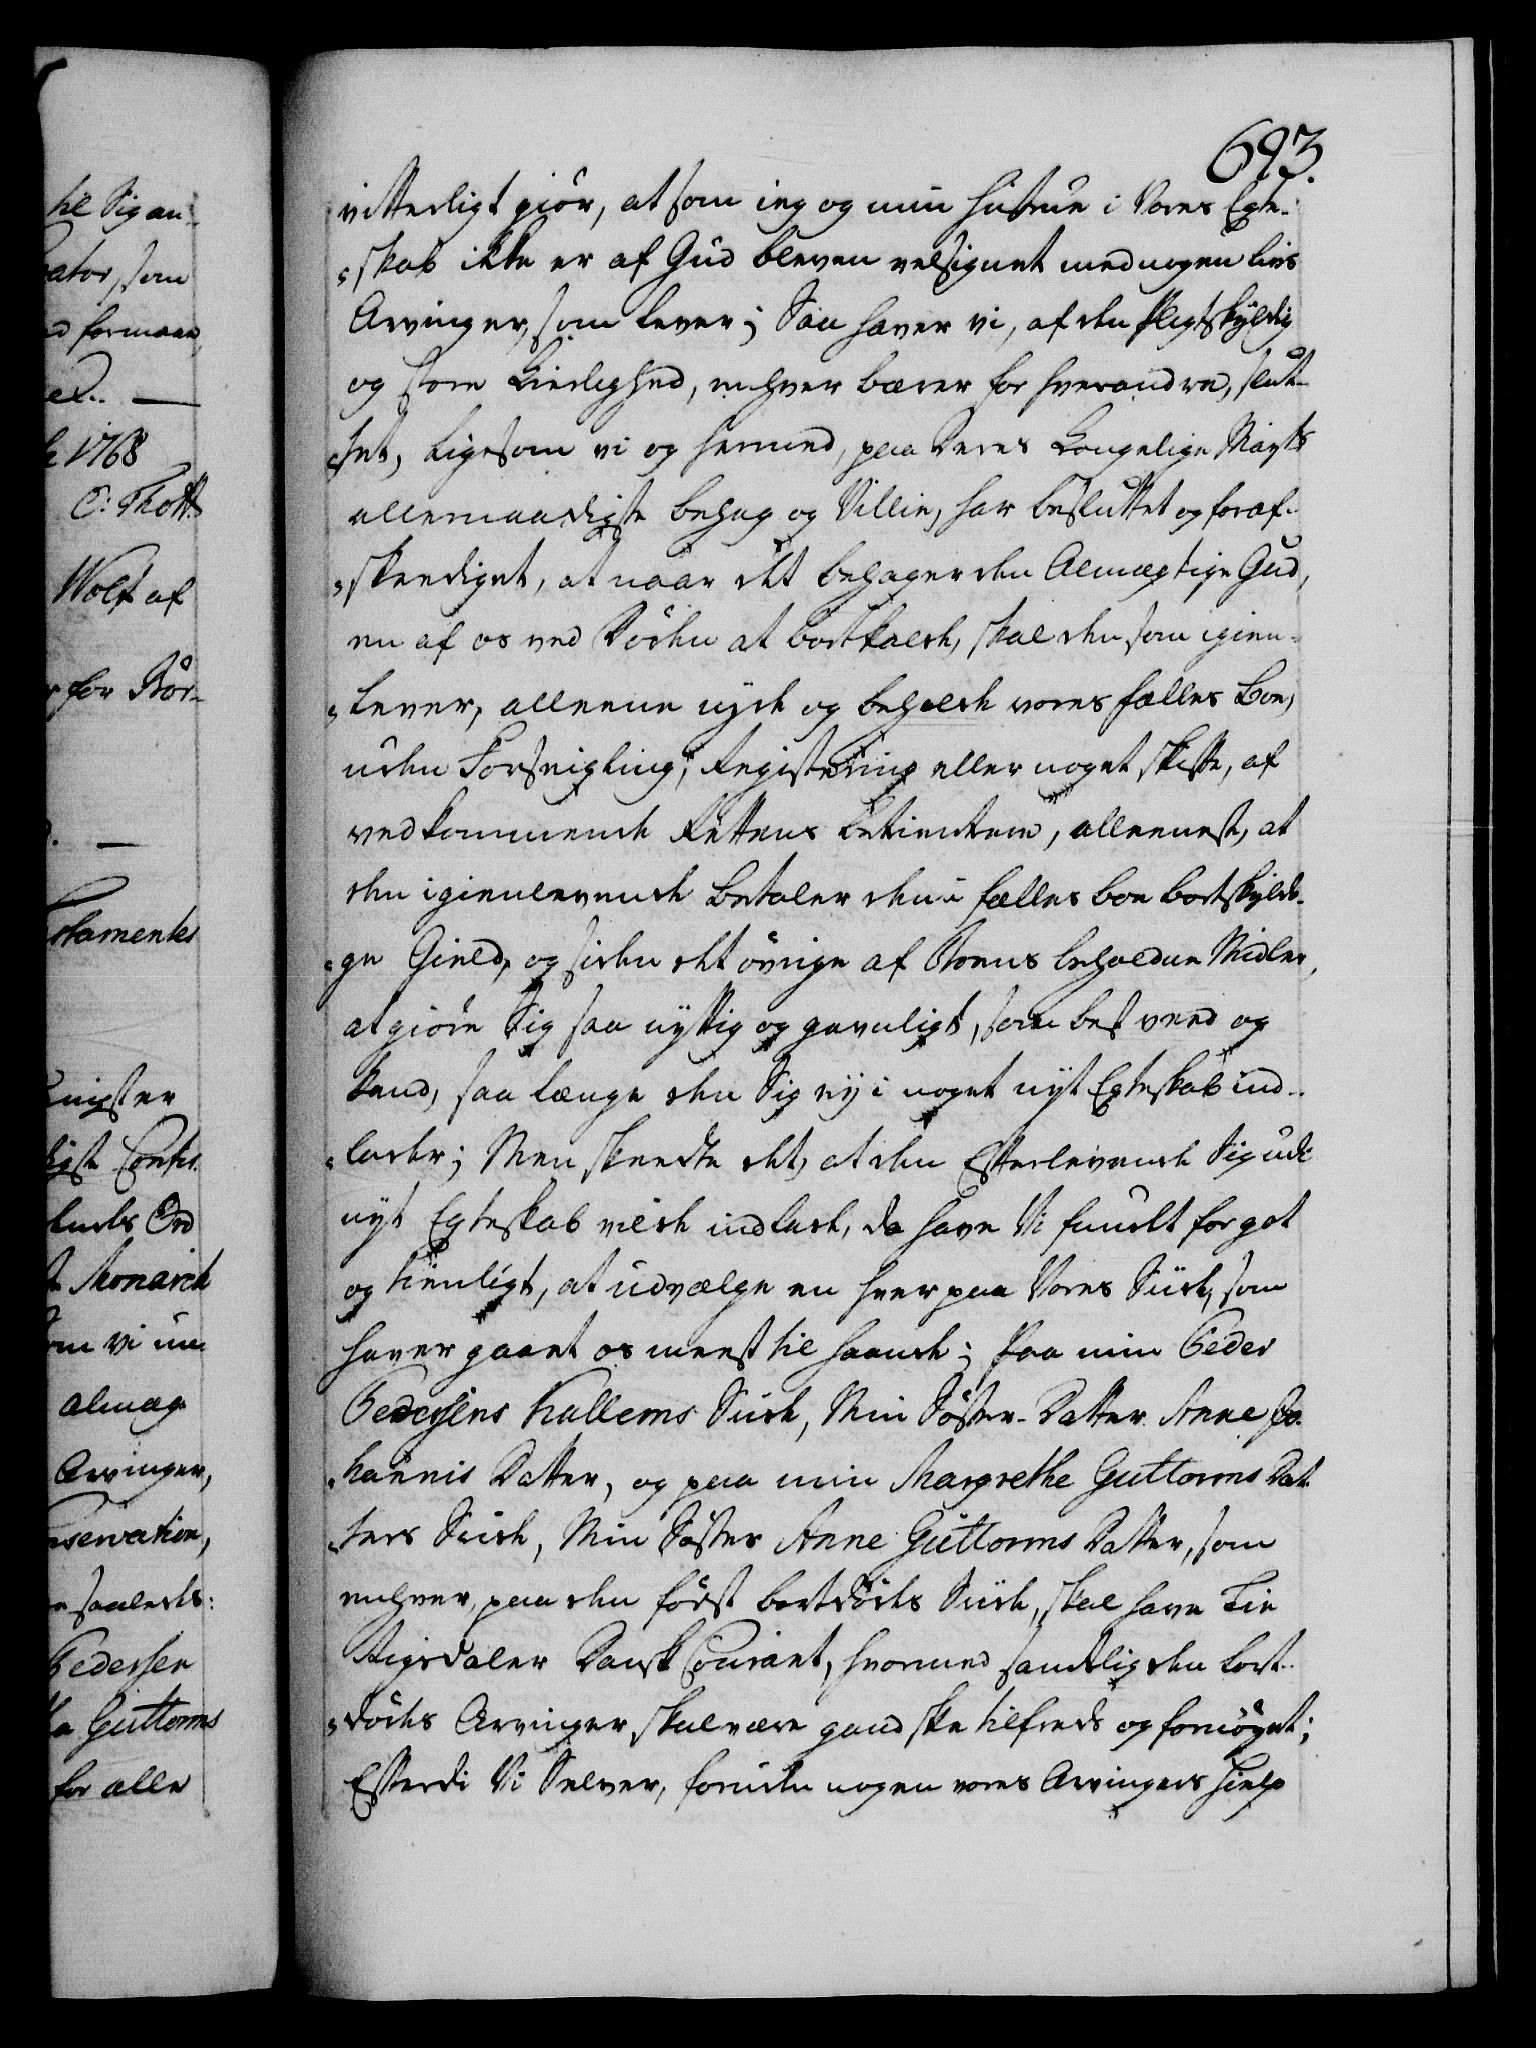 693.
vitterligt giör, at som ieg og min Hustrue i Vores Egte-
skab ikke er af Gud bleven velsignet med nogen livs
Arvinger, som lever; Saa haver vi, af den pligtskyldig
og store Kierlighed, enhver bærer for hverandre, slut-
tet, ligesom vi og hermed, paa Deres Kongelige Mayts
allernaadigste behag og Villie, har besluttet og foraf-
skeediget, at naar det behager den Almægtige Gud,
en af os ved Döden at bortkalde, skal den som igien-
lever, alleene nyde og beholde vores fælles Boe,
uden Forseigling, Registering eller noget skifte, af
vedkommende Rettens Betientere, alleeneste, at
den igienlevende betaler den i fælles boe bortskyldi-
ge Gield, og siden det övrige af Boens beholdne Midler,
at giöre Sig saa nyttig og gavnligt, som best veed og
kand, saa længe den Sig ey i noget nyt Egteskab ind-
lader; Men skeedte det, at den Efterlevende Sig udi
nyt Egteskab vilde indlade, da have Vi fundet for got
og tienligt, at udvælge en hver paa Vores Side, som
haver gaaet os meest til haande; Paa min Peder
Pedersens Hallems Side, Min Söster-Datter Anne Jo-
hannis Datter, og paa min Margrethe Guttorms Dat-
ters Side, Min Söster Anne Guttorms Datter, som
enhver, paa den först bortdödes Side, skal have Tie
Rigsdaler Dansk Courant, hvormed samtlig den bort-
dödes Arvinger skal være gandske tilfreds og fornöyet;
Efterdi Vi Selver, foruden nogen vores Arvingers Hielp
til Sig an-
som
formaae
1768
O: Thott
Wolf af
for Bör-
Monarch
om vi un-
almæg-
Arvinger,
saaledes:
Pedersen
Guttorms
for alle